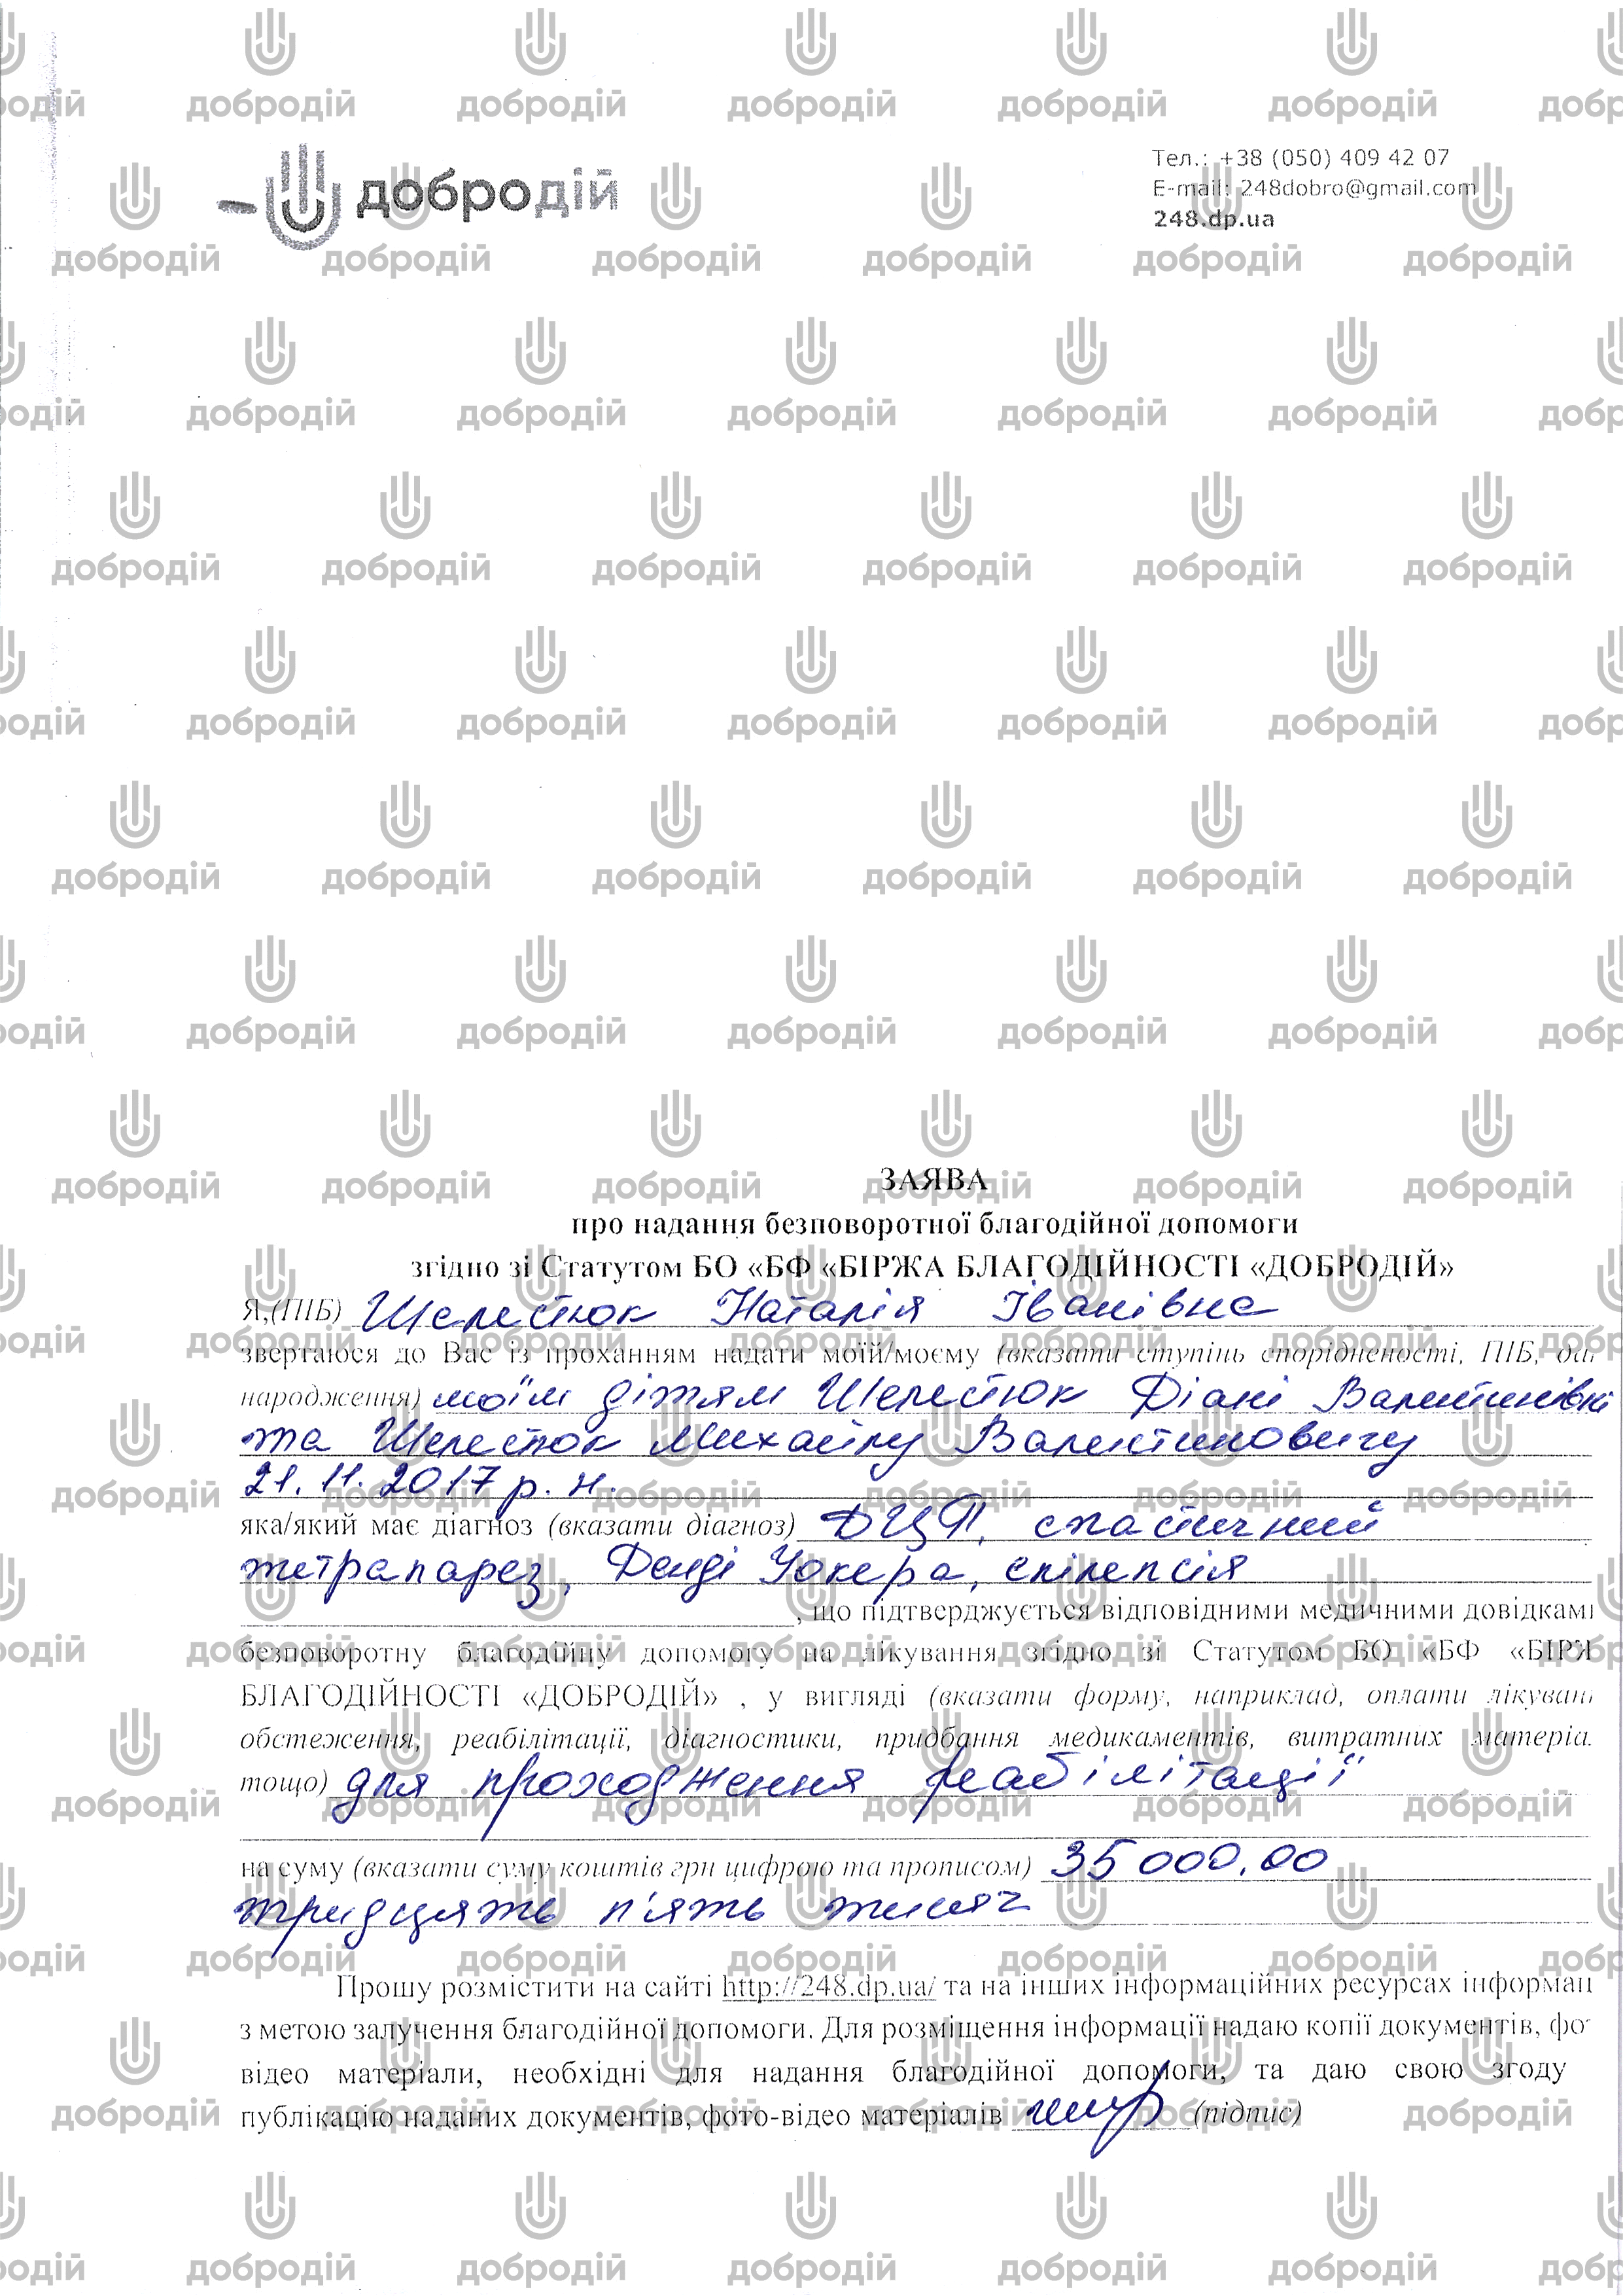 добродій
Тел.: +38 (050) 409 42 07
E-mail: 248dobro@gmail.com
248.dp.ua
ЗАЯВА
про надання безповоротної благодійної допомоги
згідно зі Статутом БО «БФ «БІРЖА БЛАГОДІЙНОСТІ «ДОБРОДІЙ»
Я,(ПІБ) Шелестюк Наталія Іванівна
звертаюся до Вас із проханням надати моїй/моєму (вказати ступінь спорідненості, ПІБ,
народження) моїм дітям Шелестюк Діані Валентинівні
та Шелестюк Михайлу Валентиновичу
21.11.2017 р.н.
яка/який має діагноз (вказати діагноз) ДЦП, спастичний
тетрапарез, Денді Уокера, епілепсія
, що підтверджується відповідними медичними довідкам
безповоротну благодійну допомогу на лікування згідно зі Статутом БО «БФ «БІРЖ
БЛАГОДІЙНОСТІ «ДОБРОДІЙ» , у вигляді (вказати форму, наприклад, оплати лікуван
обстеження, реабілітації, діагностики, придбання медикаментів, витратних матеріа
тощо) для проходження реабілітації
на суму (вказати суму коштів грн цифрою та прописом) 35 000.00
тридцять п'ять тисяч
Прошу розмістити на сайті http://248.dp.ua/ та на інших інформаційних ресурсах інформац
з метою залучення благодійної допомоги. Для розміщення інформації надаю копії документів, фо
відео матеріали, необхідні для надання благодійної допомоги, та даю свою згоду
публікацію наданих документів, фото-відео матеріалів (підпис)